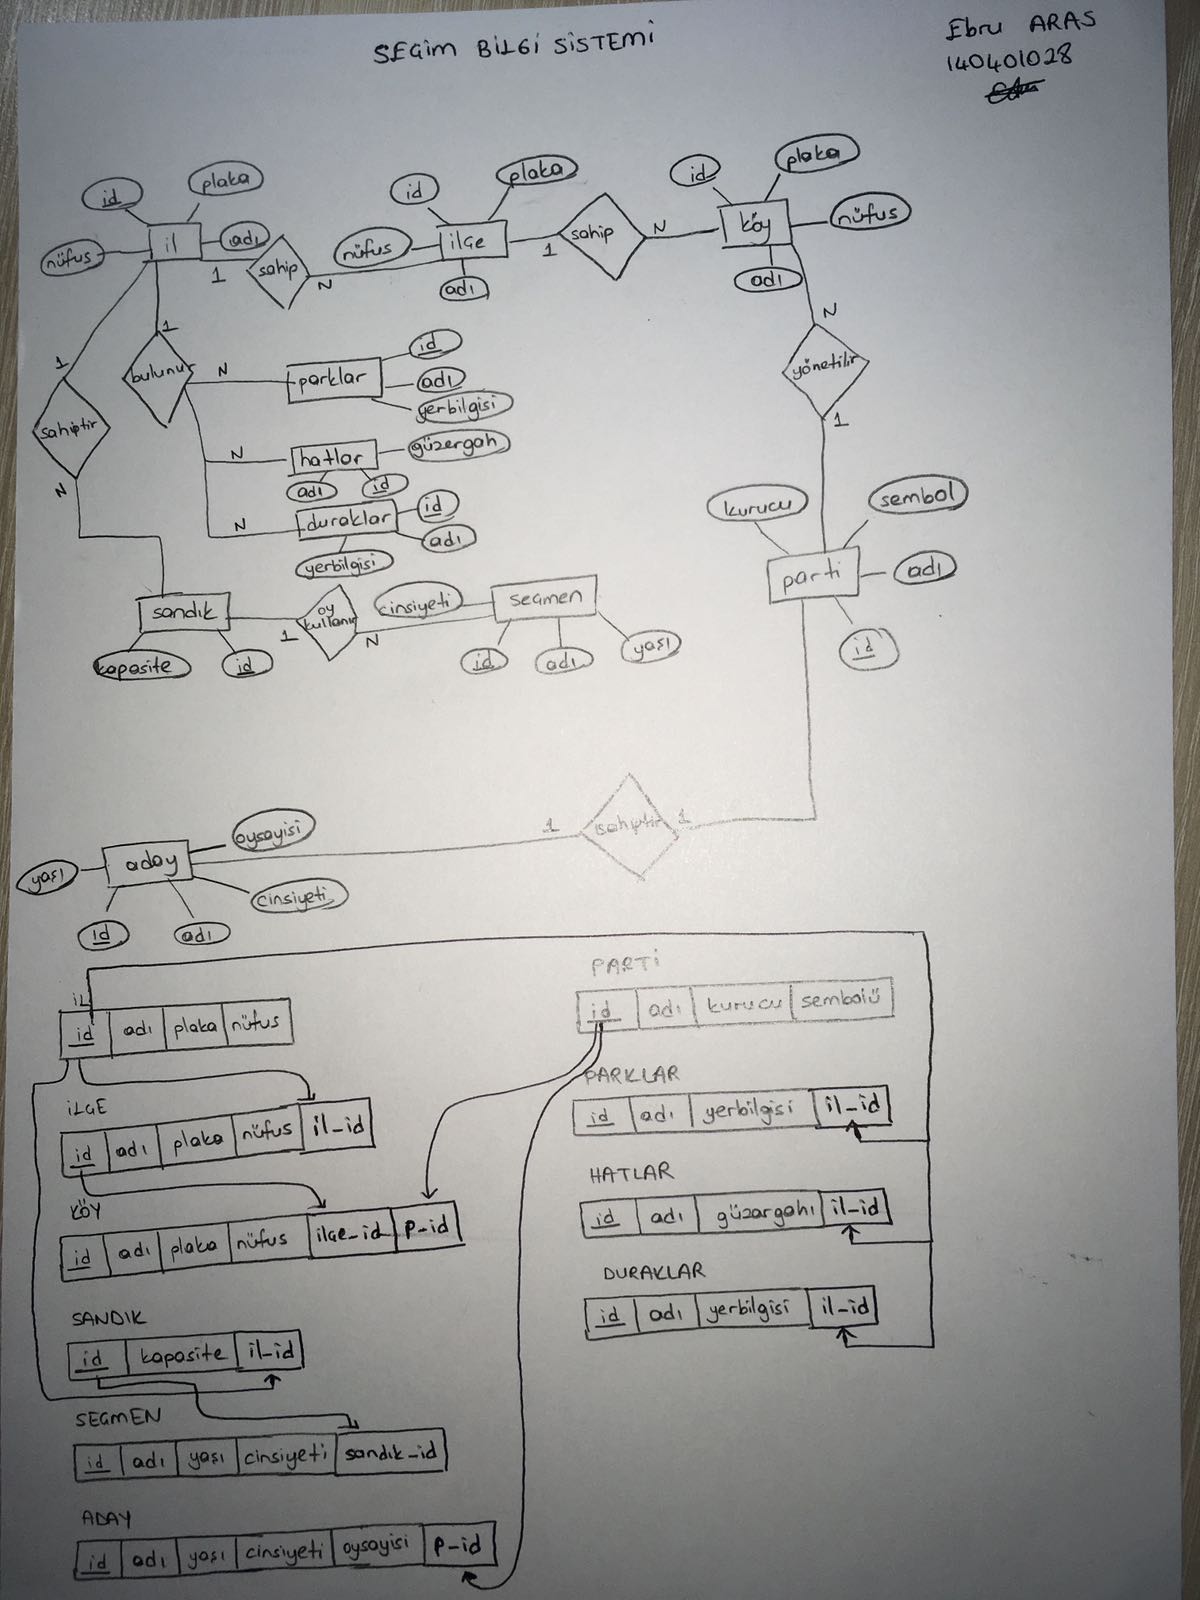 SEÇİM BİLGİ SİSTEMİ
Ebru ARAS
140401028
id plaka
nüfus il adı
1 sahip N
id plaka
nüfus ilçe
adı
1 sahip N
id plaka
köy nüfus
adı
N
yönetilir
1
1
sahiptir
N
1
bulunur
N parklar id
adı
yerbilgisi
N hatlar güzergah
adı id
N duraklar id
adı
yerbilgisi
kurucu sembol
parti adı
id
sandık
kapasite id
1 oy kullanır N
cinsiyeti seçmen
id adı yaşı
1 sahiptir 1
oysayisi
yaşı aday
cinsiyeti
id adı
İL
id adı plaka nüfus
İLÇE
id adı plaka nüfus il_id
KÖY
id adı plaka nüfus ilçe_id p-id
SANDIK
id kapasite il-id
SEÇMEN
id adı yaşı cinsiyeti sandık-id
ADAY
id adı yaşı cinsiyeti oysayisi p-id
PARTİ
id adı kurucu sembolü
PARKLAR
id adı yerbilgisi il_id
HATLAR
id adı güzargahı il-id
DURAKLAR
id adı yerbilgisi il-id